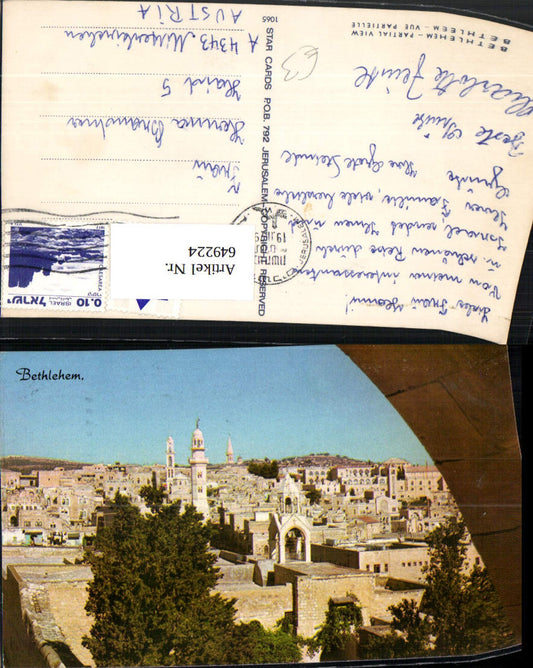 BETHLEHEM - PARTIAL VIEW
BETHLEEM - VUE PARTIELLE
63
Liebe Frau Hermi!
Von meiner interessanten
u. schönen Reise durch
Israel sendet Ihnen und
Ihrer Familie, viele herzliche
Grüsse
Ihre Grete
Beste Grüße
1065 STAR CARDS P.O.B. 792 JERUSALEM - COPYRIGHT RESERVED
JERUSALEM
19
CAESAREA
קיסריה
0.10
ISRAEL ישראל
Frau
Haid 5
A 4343 Mitterkirchen
AUSTRIA
Artikel Nr.
649224
Bethlehem.